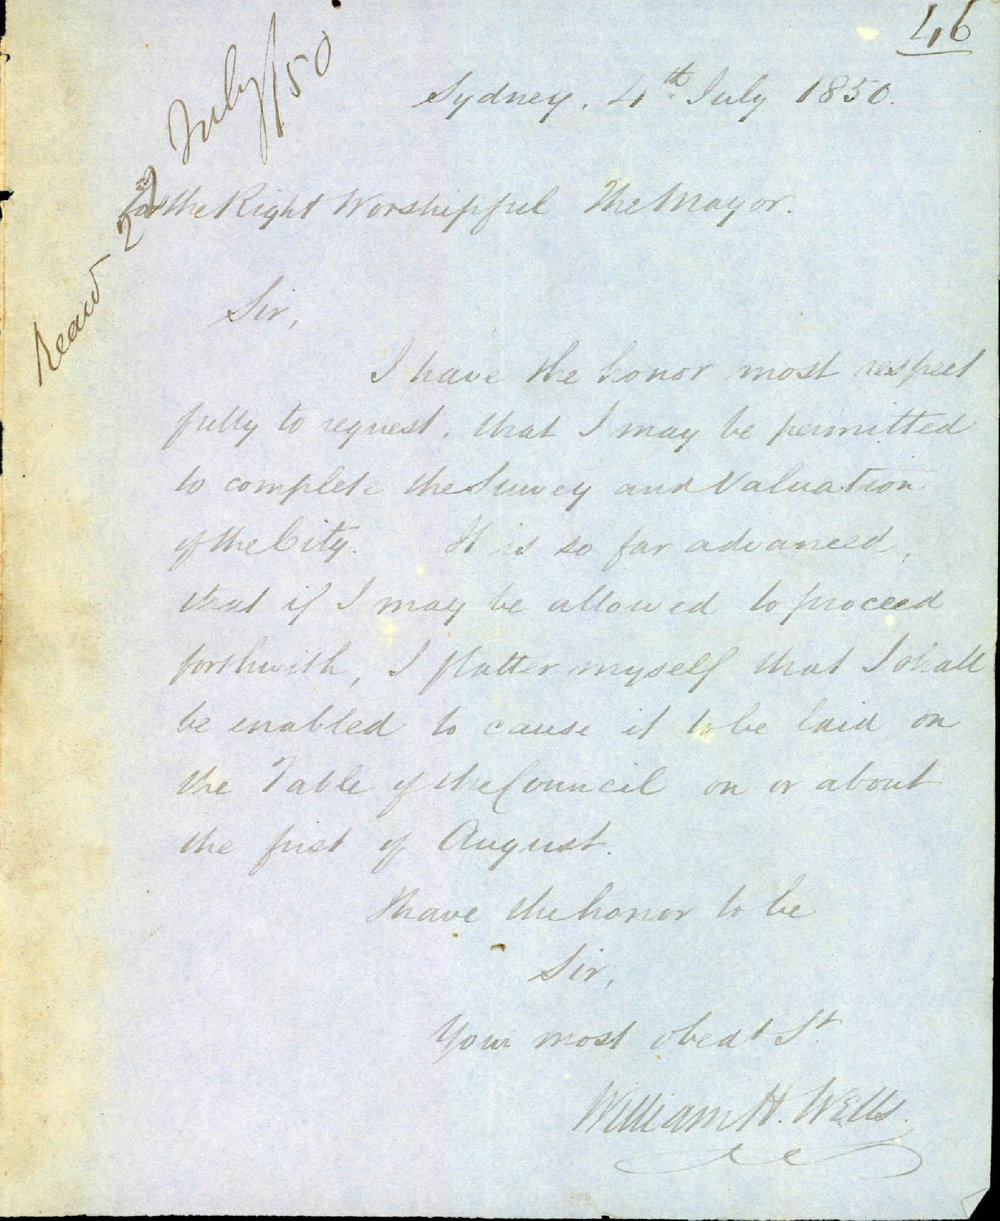 46
Read 22 July/50
Sydney, 4th July 1850.
To the Right Worshipful The Mayor.
Sir,
I have the honor most respect
fully to request, that I may be permitted
to complete the Survey and Valuation
of the City. It is so far advanced,
that if I may be allowed to proceed
forthwith, I flatter myself that I shall
be enabled to cause it to be laid on
the Table of the Council on or about
the first of August.
I have the honor to be
Sir,
Your most obedt St
William H. Wells.